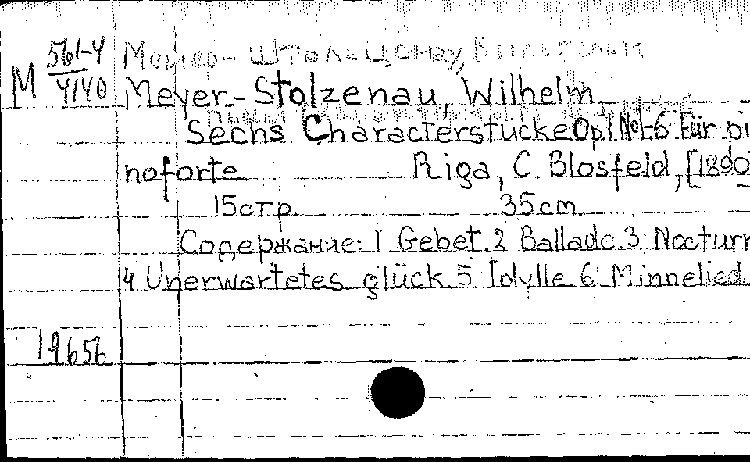 М 561-4
4140
Мейер-Штольценау, Вильгельм
Meyer-Stolzenau, Wilhelm
Sechs Characterstücke Op1 №1-6 Für Pi
noforte Riga, C. Blosfeld, [1890
15стр. 35cm
Содержание: 1 Gebet. 2 Ballade. 3 Nocturn
4 Unerwartetes glück 5 Idylle 6 Minnelied